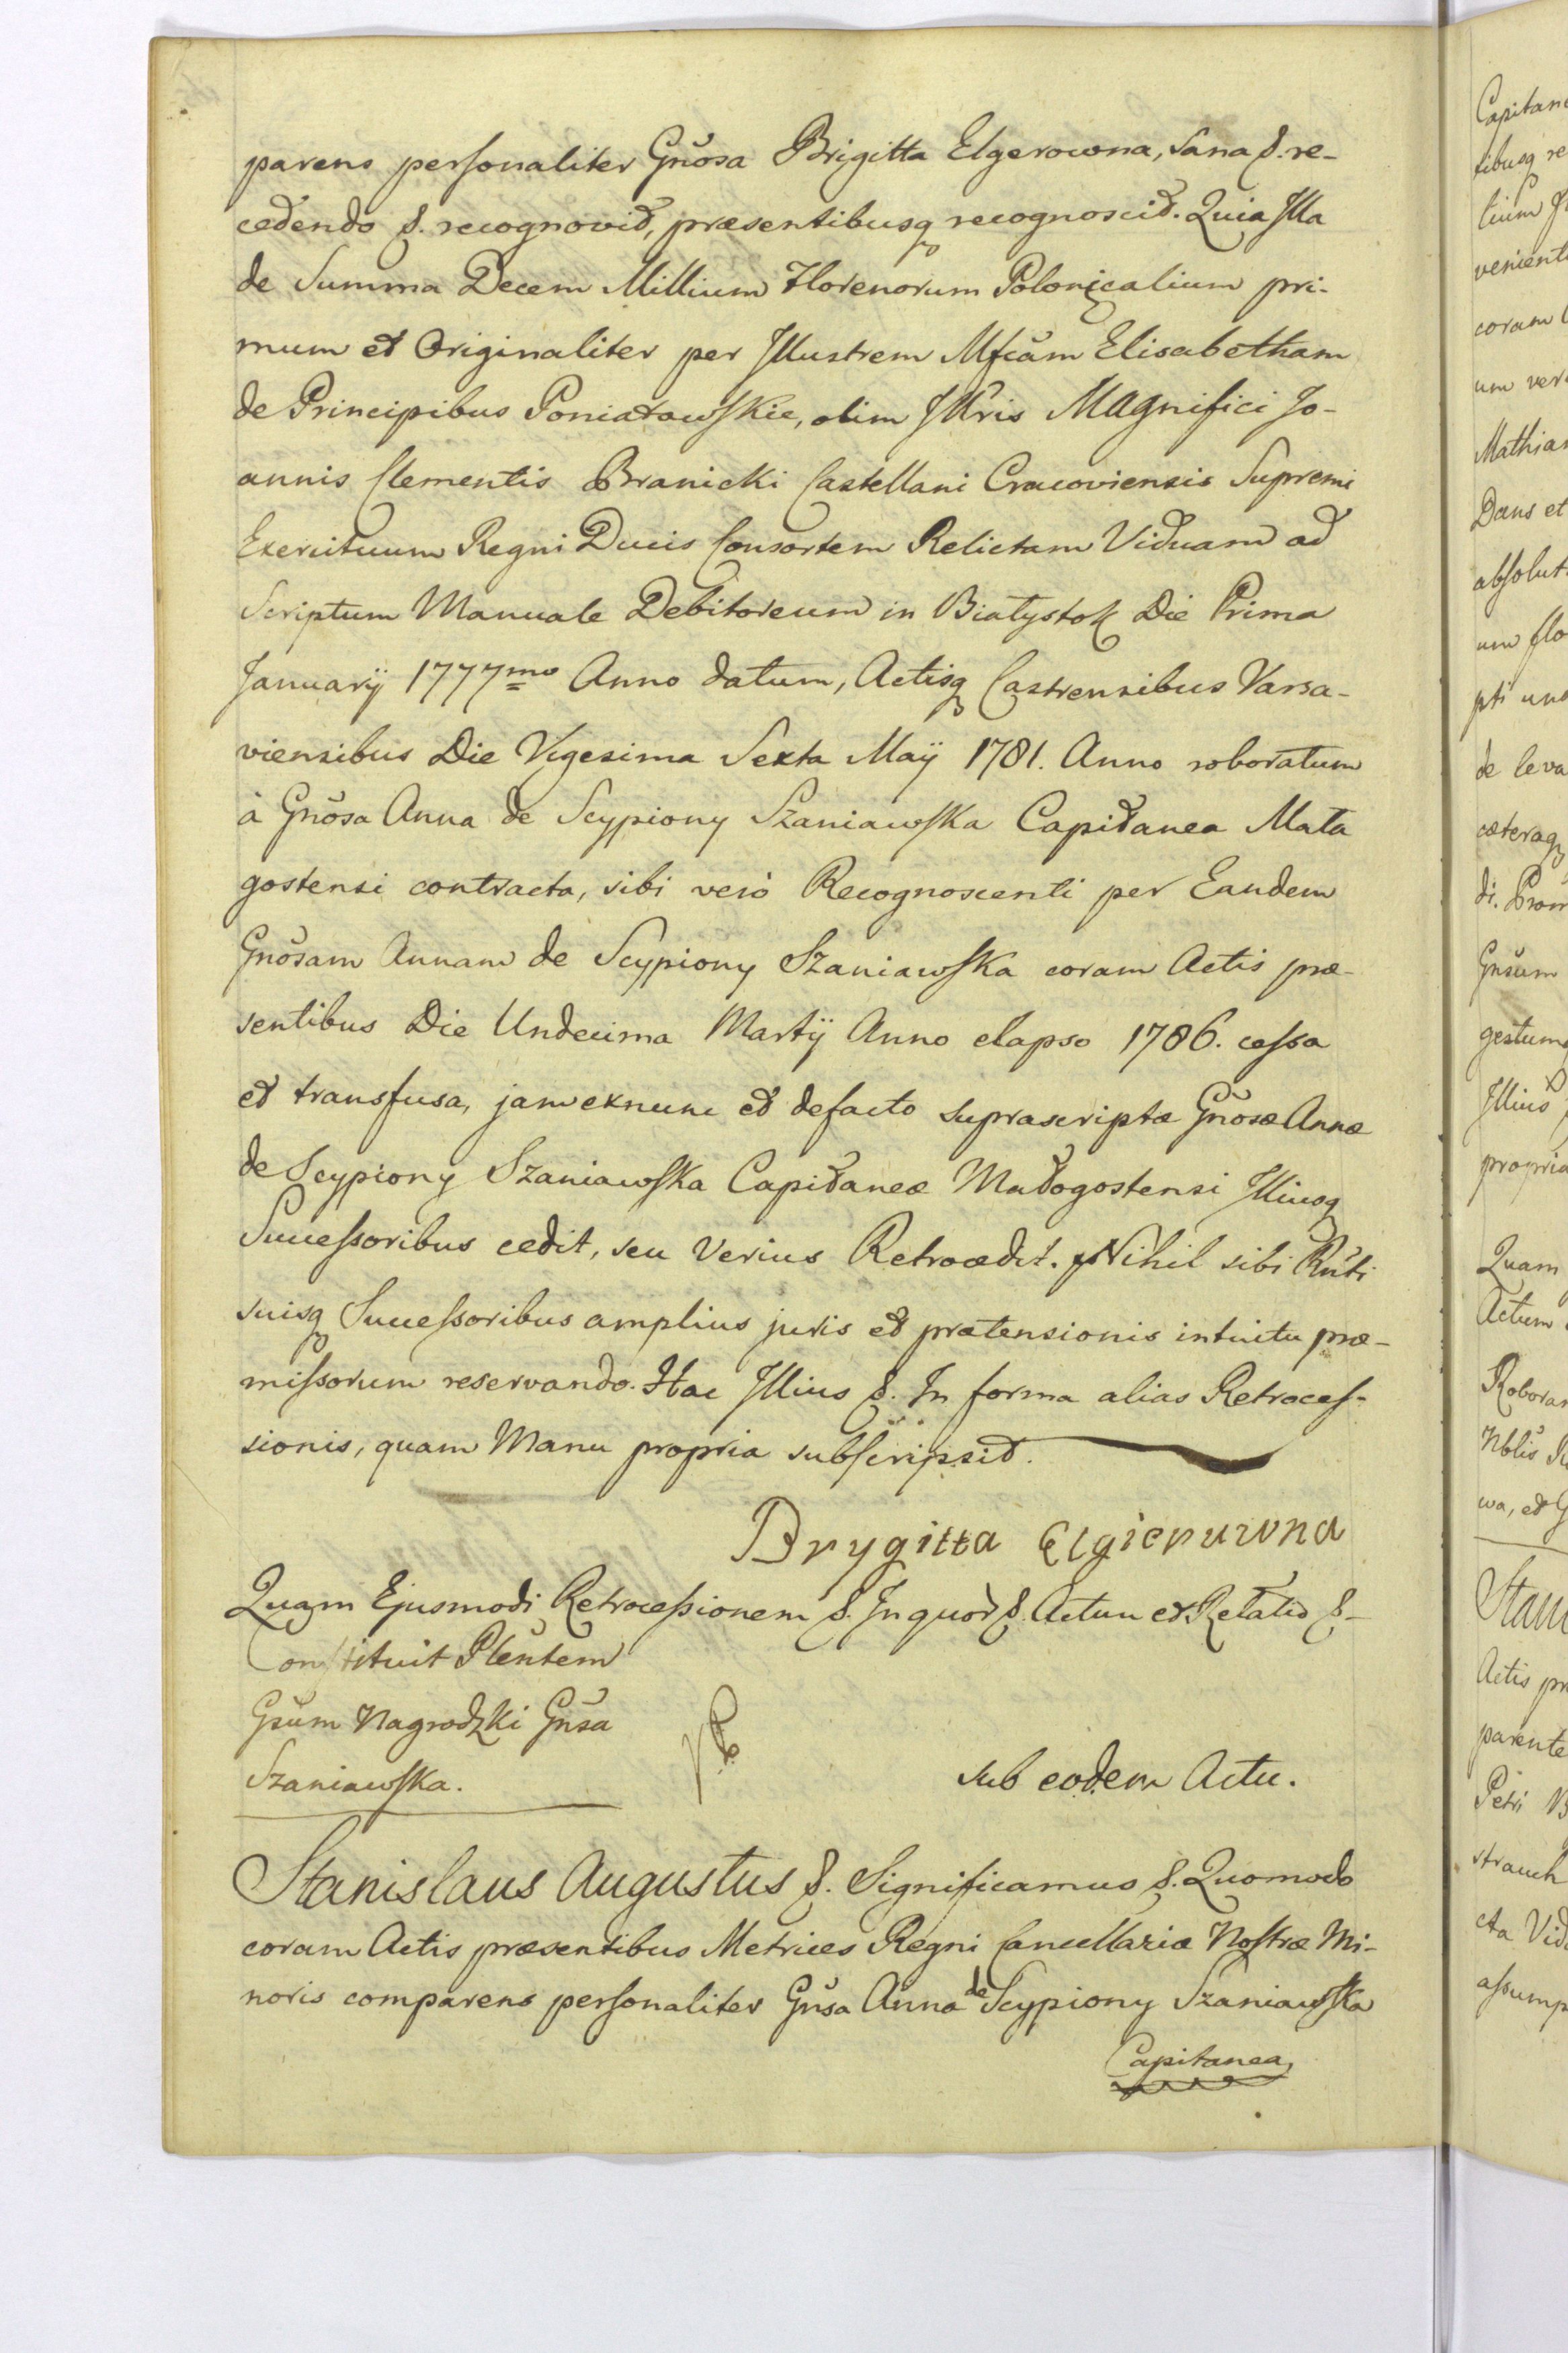 parens personaliter Gnŏsa Brigitta Elgerowna, Sana &. re-
cedendo &. recognovit, præsentibusq recognoscit. Quia Illa
de Summa Decem Millium Florenorum Polonicalium pri-
mum et Originaliter per Illustrem Mfcăm Elisabetham
de Principibus Poniatowskie, olim Illris Magnifici Jo-
annis Clementis Branicki Castellani Cracoviensis Supremi
Exercituum Regni Ducis Consortem Relictam Viduam ad
Scriptum Manuale Debitoreum in Białystok Die Prima
Januarÿ 1777mo Anno datum, Actisq Castrensibus Varsa-
viensibus Die Vigesima Sexta Maÿ 1781. Anno roboratum
à Gnŏsa Anna de Scypiony Szaniawska Capitanea Mała
gostensi contracta, sibi verò Recognoscenti per Eandem
Gnŏsam Annam de Scypiony Szaniawska coram Actis præ-
sentibus Die Undecima Martÿ Anno elapso 1786. cessa
et transfusa, jam exnunc et defacto suprascriptæ Gnŏsæ Annæ
de Scypiony Szaniawska Capitaneæ Małogostensi Illiusq
Successoribus cedit, seu Verius Retrocedit. Nihil sibi Rn̆ti
suisq Successoribus amplius juris et prætensionis intuitu præ-
missorum reservando. Hac Illius &. In forma alias Retroces-
sionis, quam Manu propria subscripsit.
Brygitta Elgierowna
Quam Ejusmodi Retrocessionem &. In quor &. Actum et Relatio &-
Constituit Plĕntem
Gsŭm Nagrodzki Gnŭsa
Szaniawska.
sub eodem Actu.
Stanislaus Augustus &. Significamus &. Quomodo
coram Actis præsentibus Metrices Regni Cancellariæ Nostræ Mi-
noris comparens personaliter Gnŭsa Anna de Scypiony Szaniawska
Capitanea
Capitane
tibusq re
lium
venient
coram
um ver
Mathia
Dans et
absolut
um flo
pti una
de leva
cæteraq
di. Prom
Gnŭsum
gestum
Illius
propria
Quam
Actum
Roboran
Nblis
wa, et G
Stani
Actis pr
parente
Petri B
strauch
cta Vid
assump